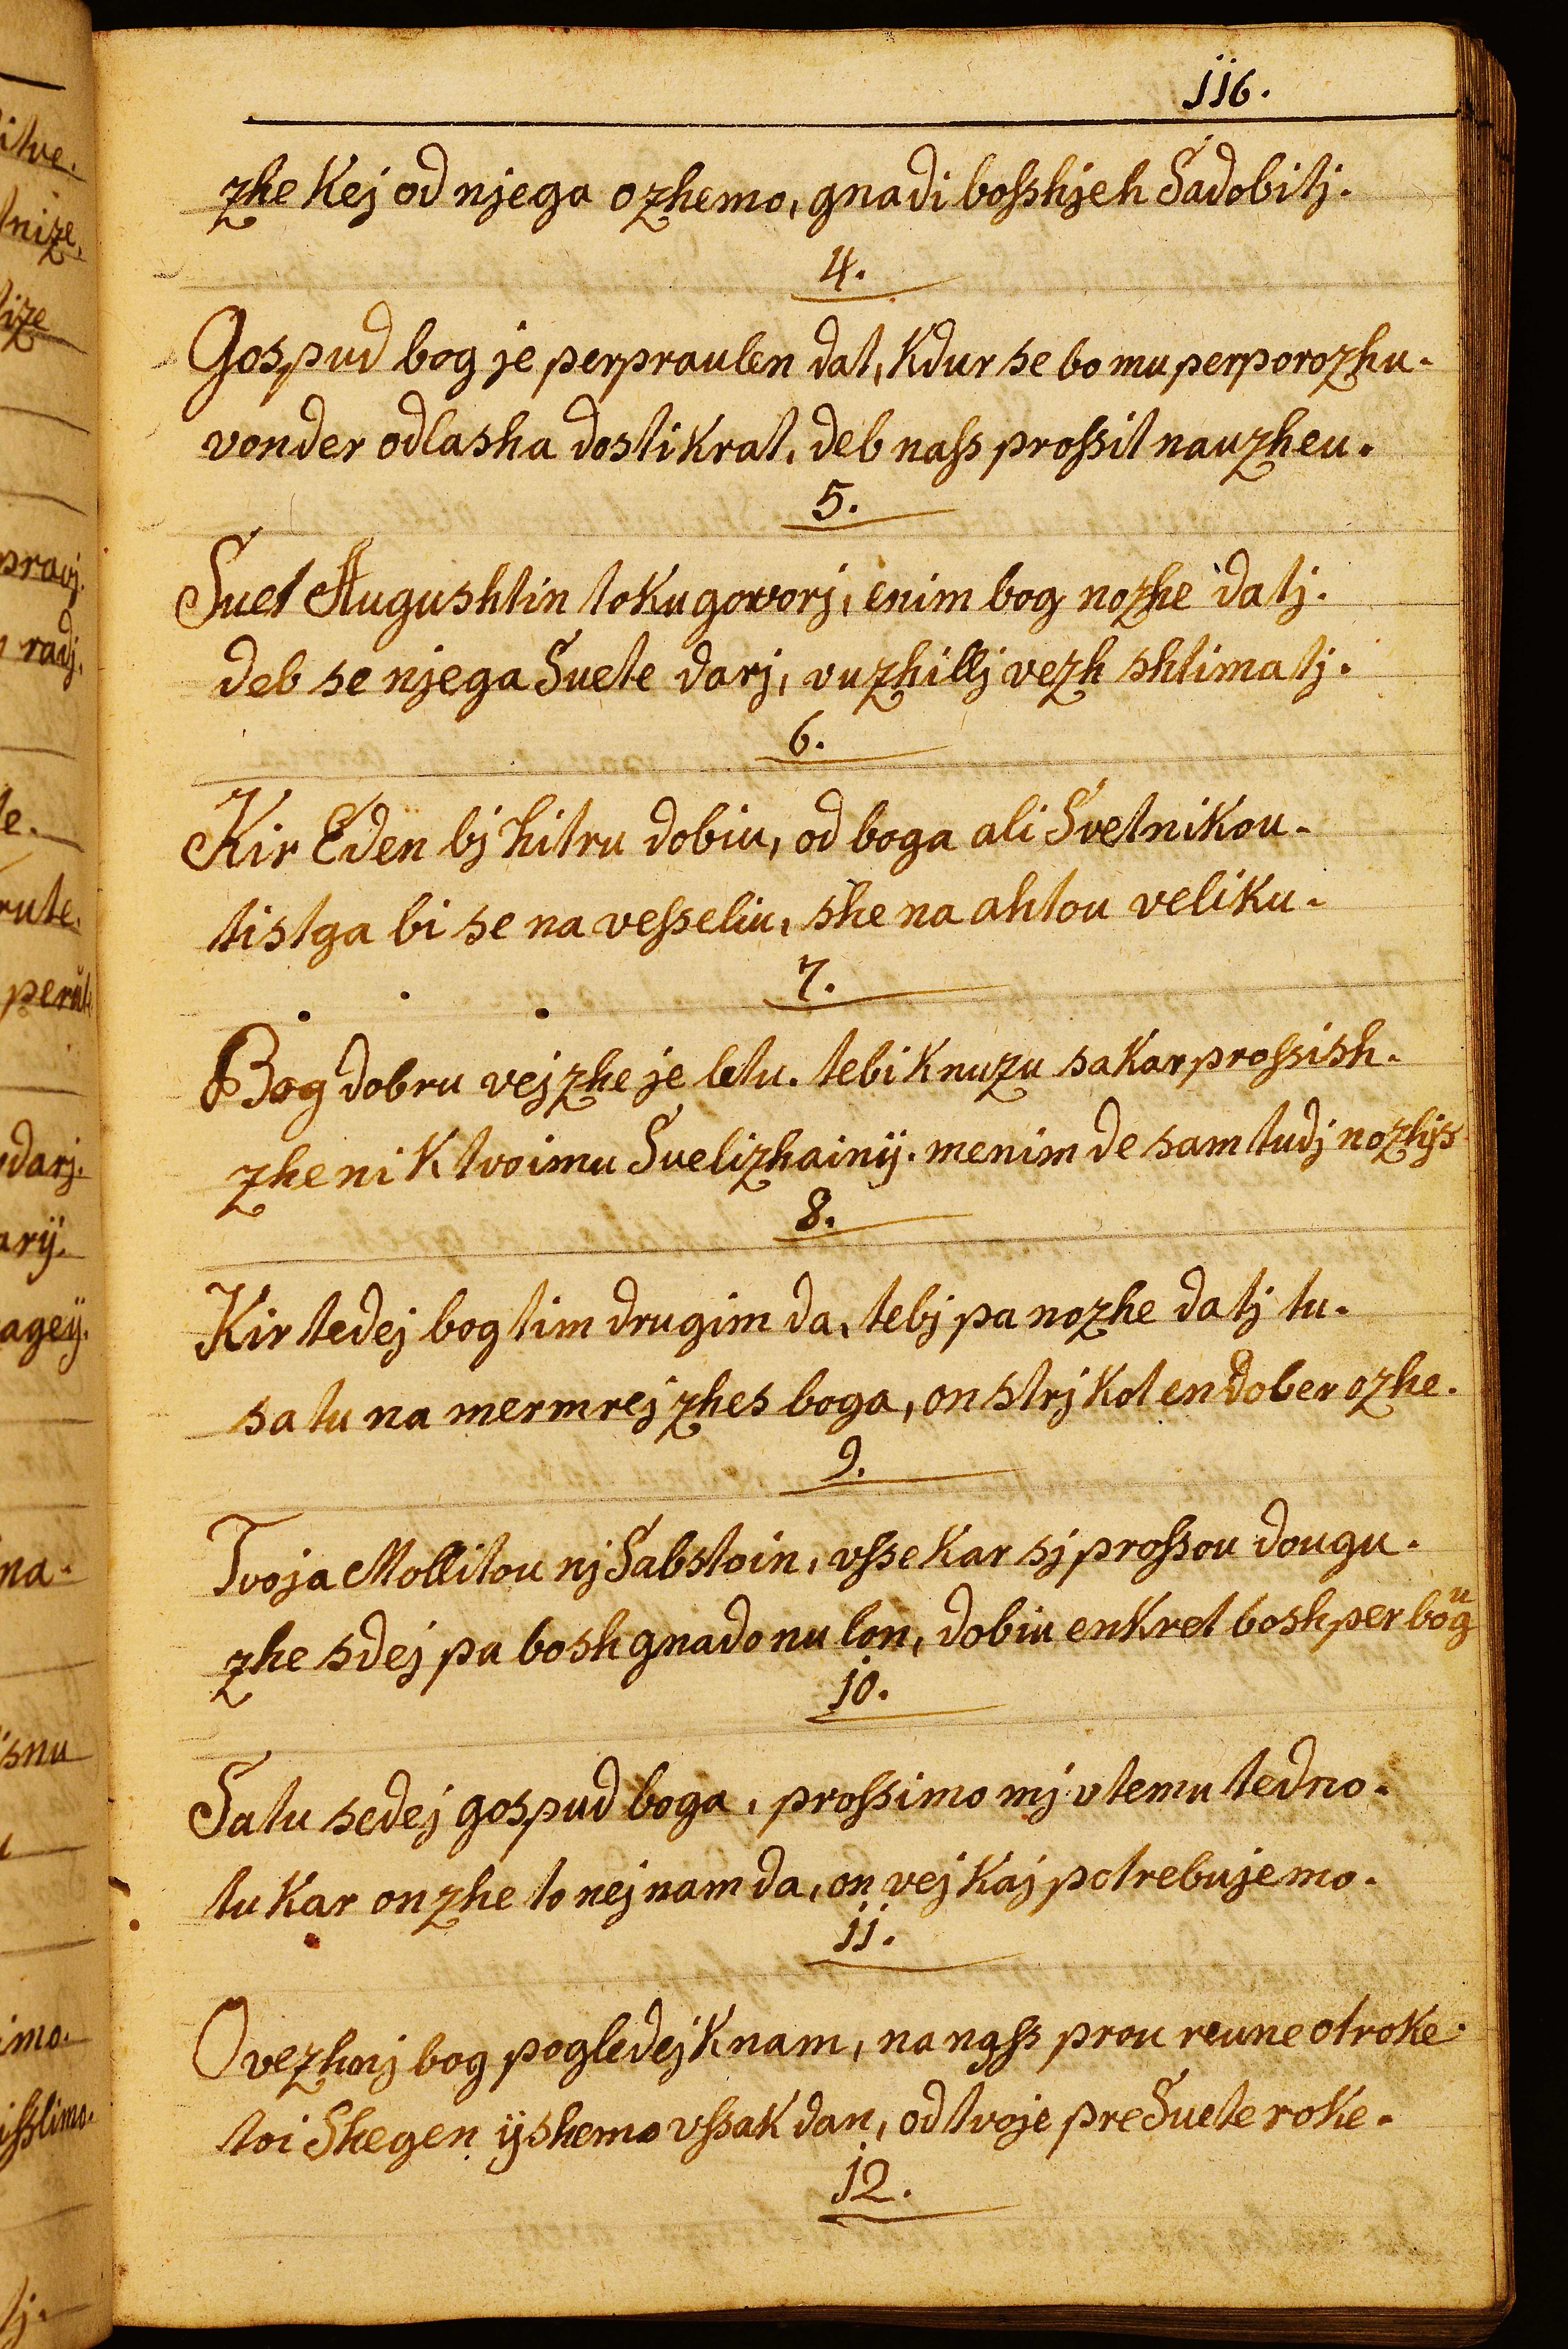 116.
zhe Kej od njega ozhemo, gnadi bosshjeh Sadobitj.
4.
Gospud bog je perpraulen dat, Kdur se bo mu perporozhu.
vonder odlasha dostikrat, deb nass prossit nauzheu.
5.
Suet Augushtin toku govorj, enim bog nozhe datj.
deb se njega Suete darj, vuzhillj vezh shtimatj.
6.
Kir Eden bj hitru dobiu, od boga ali Svetnikou.
tistga bi se na vesseliu, she na ahtou veliku.
7.
Bog dobru vej zhe je letu. tebi Knuzu sakar prossish.
zhe ni K tvoimu Svelizhainij. menim de sam tudj nozhjs
8.
Kir tedej bog tim drugim da, tebj pa nozhe datj tu.
sa tu na mermrej zhes boga, on strj Kot en dober ozhe.
9.
Tvoja Mollitou nj Sabstoin, vsse Kar sj prossou dougu.
zhe sdej pa bosh gnado nu lon, dobiu enkret bosh per bogu
10.
Satu sedej gospud boga, prossimo mj v temu tedno.
tu Kar on zhe to nej nam da, on vej Kaj potrebujemo.
11.
O vezhnj bog pogledej K nam, na nass prou reune otroke.
toi Shegen ijshemo vssak dan, od tvoje preSuete roke.
12.